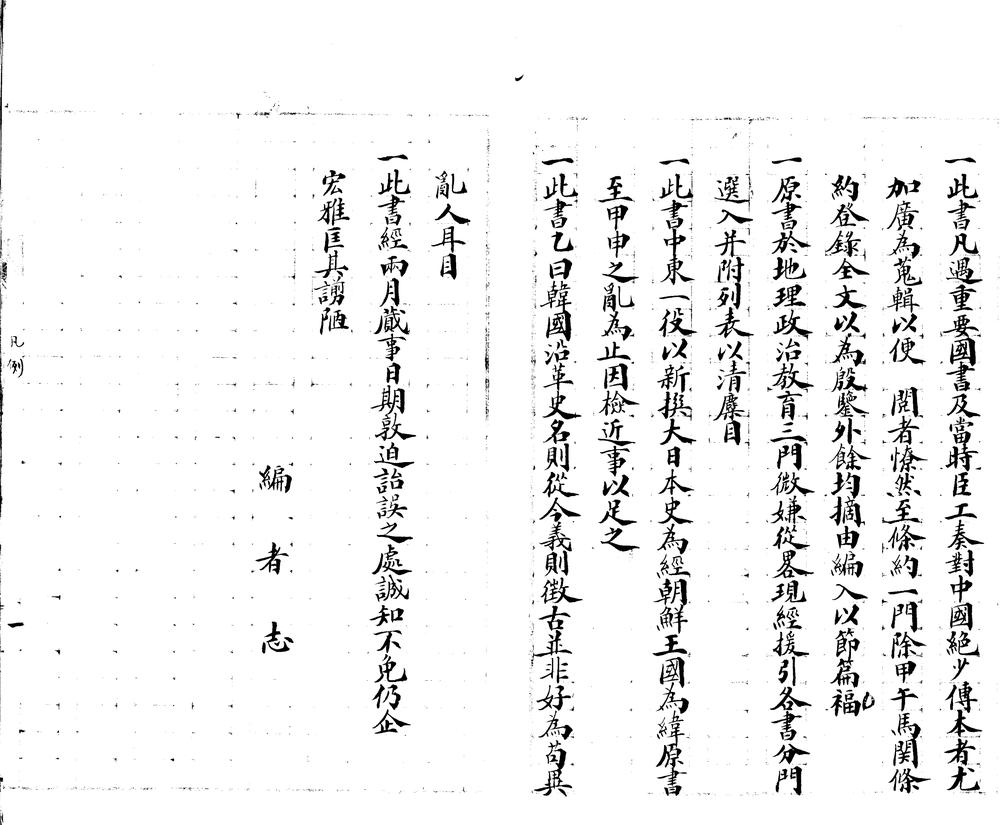 一此書凡遇重要國書及當時臣工奏對中國絕少傳本者尤
加廣為蒐輯以便　閱者憭然至條約一門除甲午馬関條
約登錄全文以為殷鑒外餘均摘由編入以節篇福
一原書於地理政治教育三門微嫌從畧現經援引各書分門
選入并附列表以清麋目
一此書中東一役以新撰大日本史為經朝鮮王國為緯原書
至甲申之亂為止因檢近事以足之
一此書乙曰韓國沿革史名則從今義則徵古並非好為苟異
亂人耳目
一此書經兩月蕆事日期敦迫詒誤之處誠知不免仍企
宏雅匡其謭陋
編者志
凡例
一